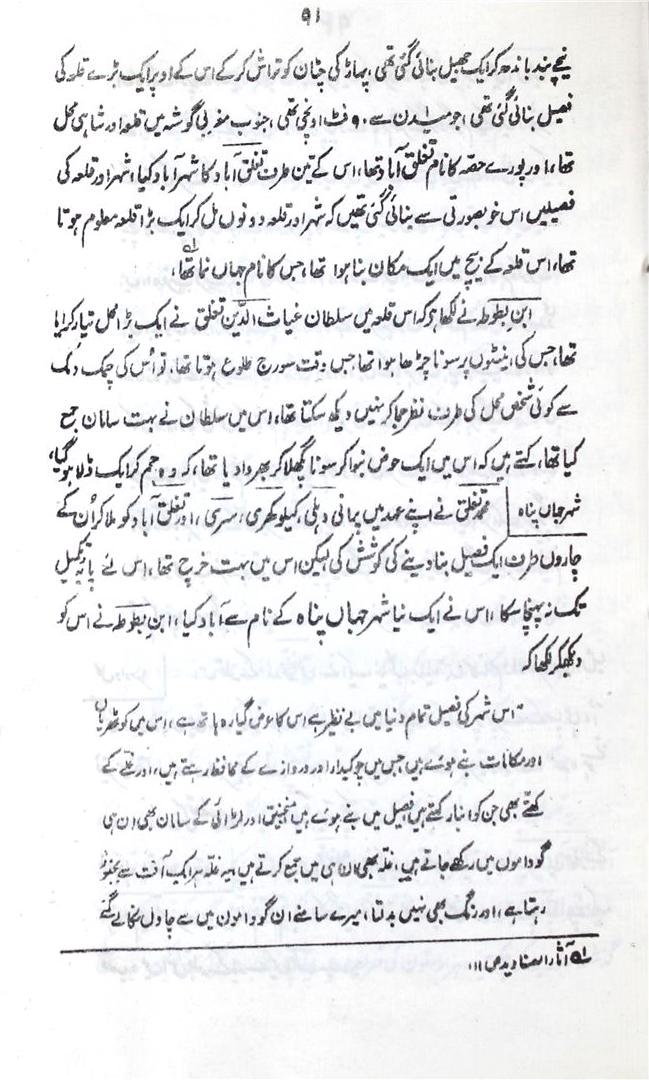 ۹۱
نیچے بند باندھ کر ایک جھیل بنائی گئی تھی، پہاڑ کی چٹان کو تراش کر کے اس کے اوپر ایک بڑے قلعہ کی
فصیل بنائی گئی تھی، جو میدان سے ۹۰ فٹ اونچی تھی، جنوب مغربی گوشہ میں قلعہ اور شاہی محل
تھا، اور پورے حصہ کا نام تغلق آباد تھا، اس کے تین طرف تغلق آباد کا شہر آباد کیا، شہر اور قلعہ کی
فصیلیں اس خوبصورتی سے بنائی گئی تھیں کہ شہر اور قلعہ دونوں مل کر ایک بڑا قلعہ معلوم ہوتا
تھا، اس قلعہ کے بیچ میں ایک مکان بنا ہوا تھا، جس کا نام جہاں نما تھا،
ابن بطوطہ نے لکھا ہے کہ اس قلعہ میں سلطان غیاث الدین تغلق نے ایک بڑا محل تیار کرایا
تھا، جس کی اینٹوں پر سونا چڑھا ہوا تھا جس وقت سورج طلوع ہوتا تھا، تو اُس کی چمک دمک
سے کوئی شخص محل کی طرف نظر جما کر نہیں دیکھ سکتا تھا، اس میں سلطان نے بہت سامان جمع
کیا تھا، کہتے ہیں کہ اس میں ایک حوض بنوا کر سونا پگھلا کر بھروا دیا تھا، کہ وہ جم کر ایک ڈلا ہو گیا،
شہر جہاں پناہ محمد تغلق نے اپنے عہد میں پرانی دہلی، کیلوکھری، سری، اور تغلق آباد کو ملا کر اُن کے
چاروں طرف ایک فصیل بنا دینے کی کوشش کی لیکن اس میں بہت خرچ تھا، اس لئے پایۂ تکمیل
تک نہ پہنچا سکا، اس نے ایک نیا شہر جہاں پناہ کے نام سے آباد کیا، ابن بطوطہ نے اس کو
دیکھکر لکھا کہ
"اس شہر کی فصیل تمام دنیا میں بے نظیر ہے اس کا عرض گیارہ ہاتھ ہے، اس میں کوٹھریاں
اور مکانات بنے ہوئے ہیں جس میں چوکیدار اور دروازے کے محافظ رہتے ہیں، اور غلے کے
کھتّے بھی جن کو انبار کہتے ہیں فصیل میں بنے ہوئے ہیں منجنیق اور لڑائی کے سامان بھی ان ہی
گوداموں میں رکھے جاتے ہیں، غلہ بھی ان ہی میں جمع کرتے ہیں یہ غلہ ہر ایک آفت سے محفوظ
رہتا ہے، اور رنگ بھی نہیں بدلتا، میرے سامنے ان گوداموں میں سے چاول نکالے گئے
لہ آثار الصنادید ص ۱۱،